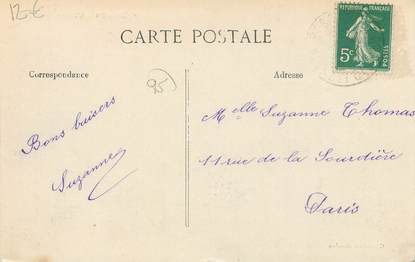 12-€
CARTE POSTALE
RÉPUBLIQUE FRANÇAISE
5c
POSTES
Correspondance
Adresse
95
Bons baisers
Suzanne
Melle Suzanne Thomas
11 rue de la Sourdière
Paris